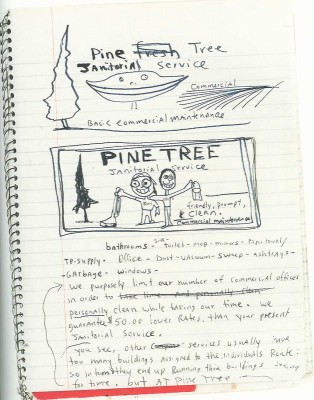 Pine Fresh Tree
Janitorial Service
Commercial
Basic commercial maintenance
PINE TREE
Janitorial Service
friendly, prompt,
& clean.
Commercial maintenance
bathrooms - sink - toilet - mop - mirrors - towel/
TP-supply. Office - Dust - vacuum - sweep - ashtrays -
- Garbage - windows -
We purposely limit our number of commercial offices
in order to take time and personally clean
personally clean while taking our time. We
guarantee $50.00 lower Rates, than your present
Janitorial Service.
You see, other services usually have
too many buildings assigned to the individuals Route.
So in turn they end up Running thru buildings
for time. but AT Pine Tree